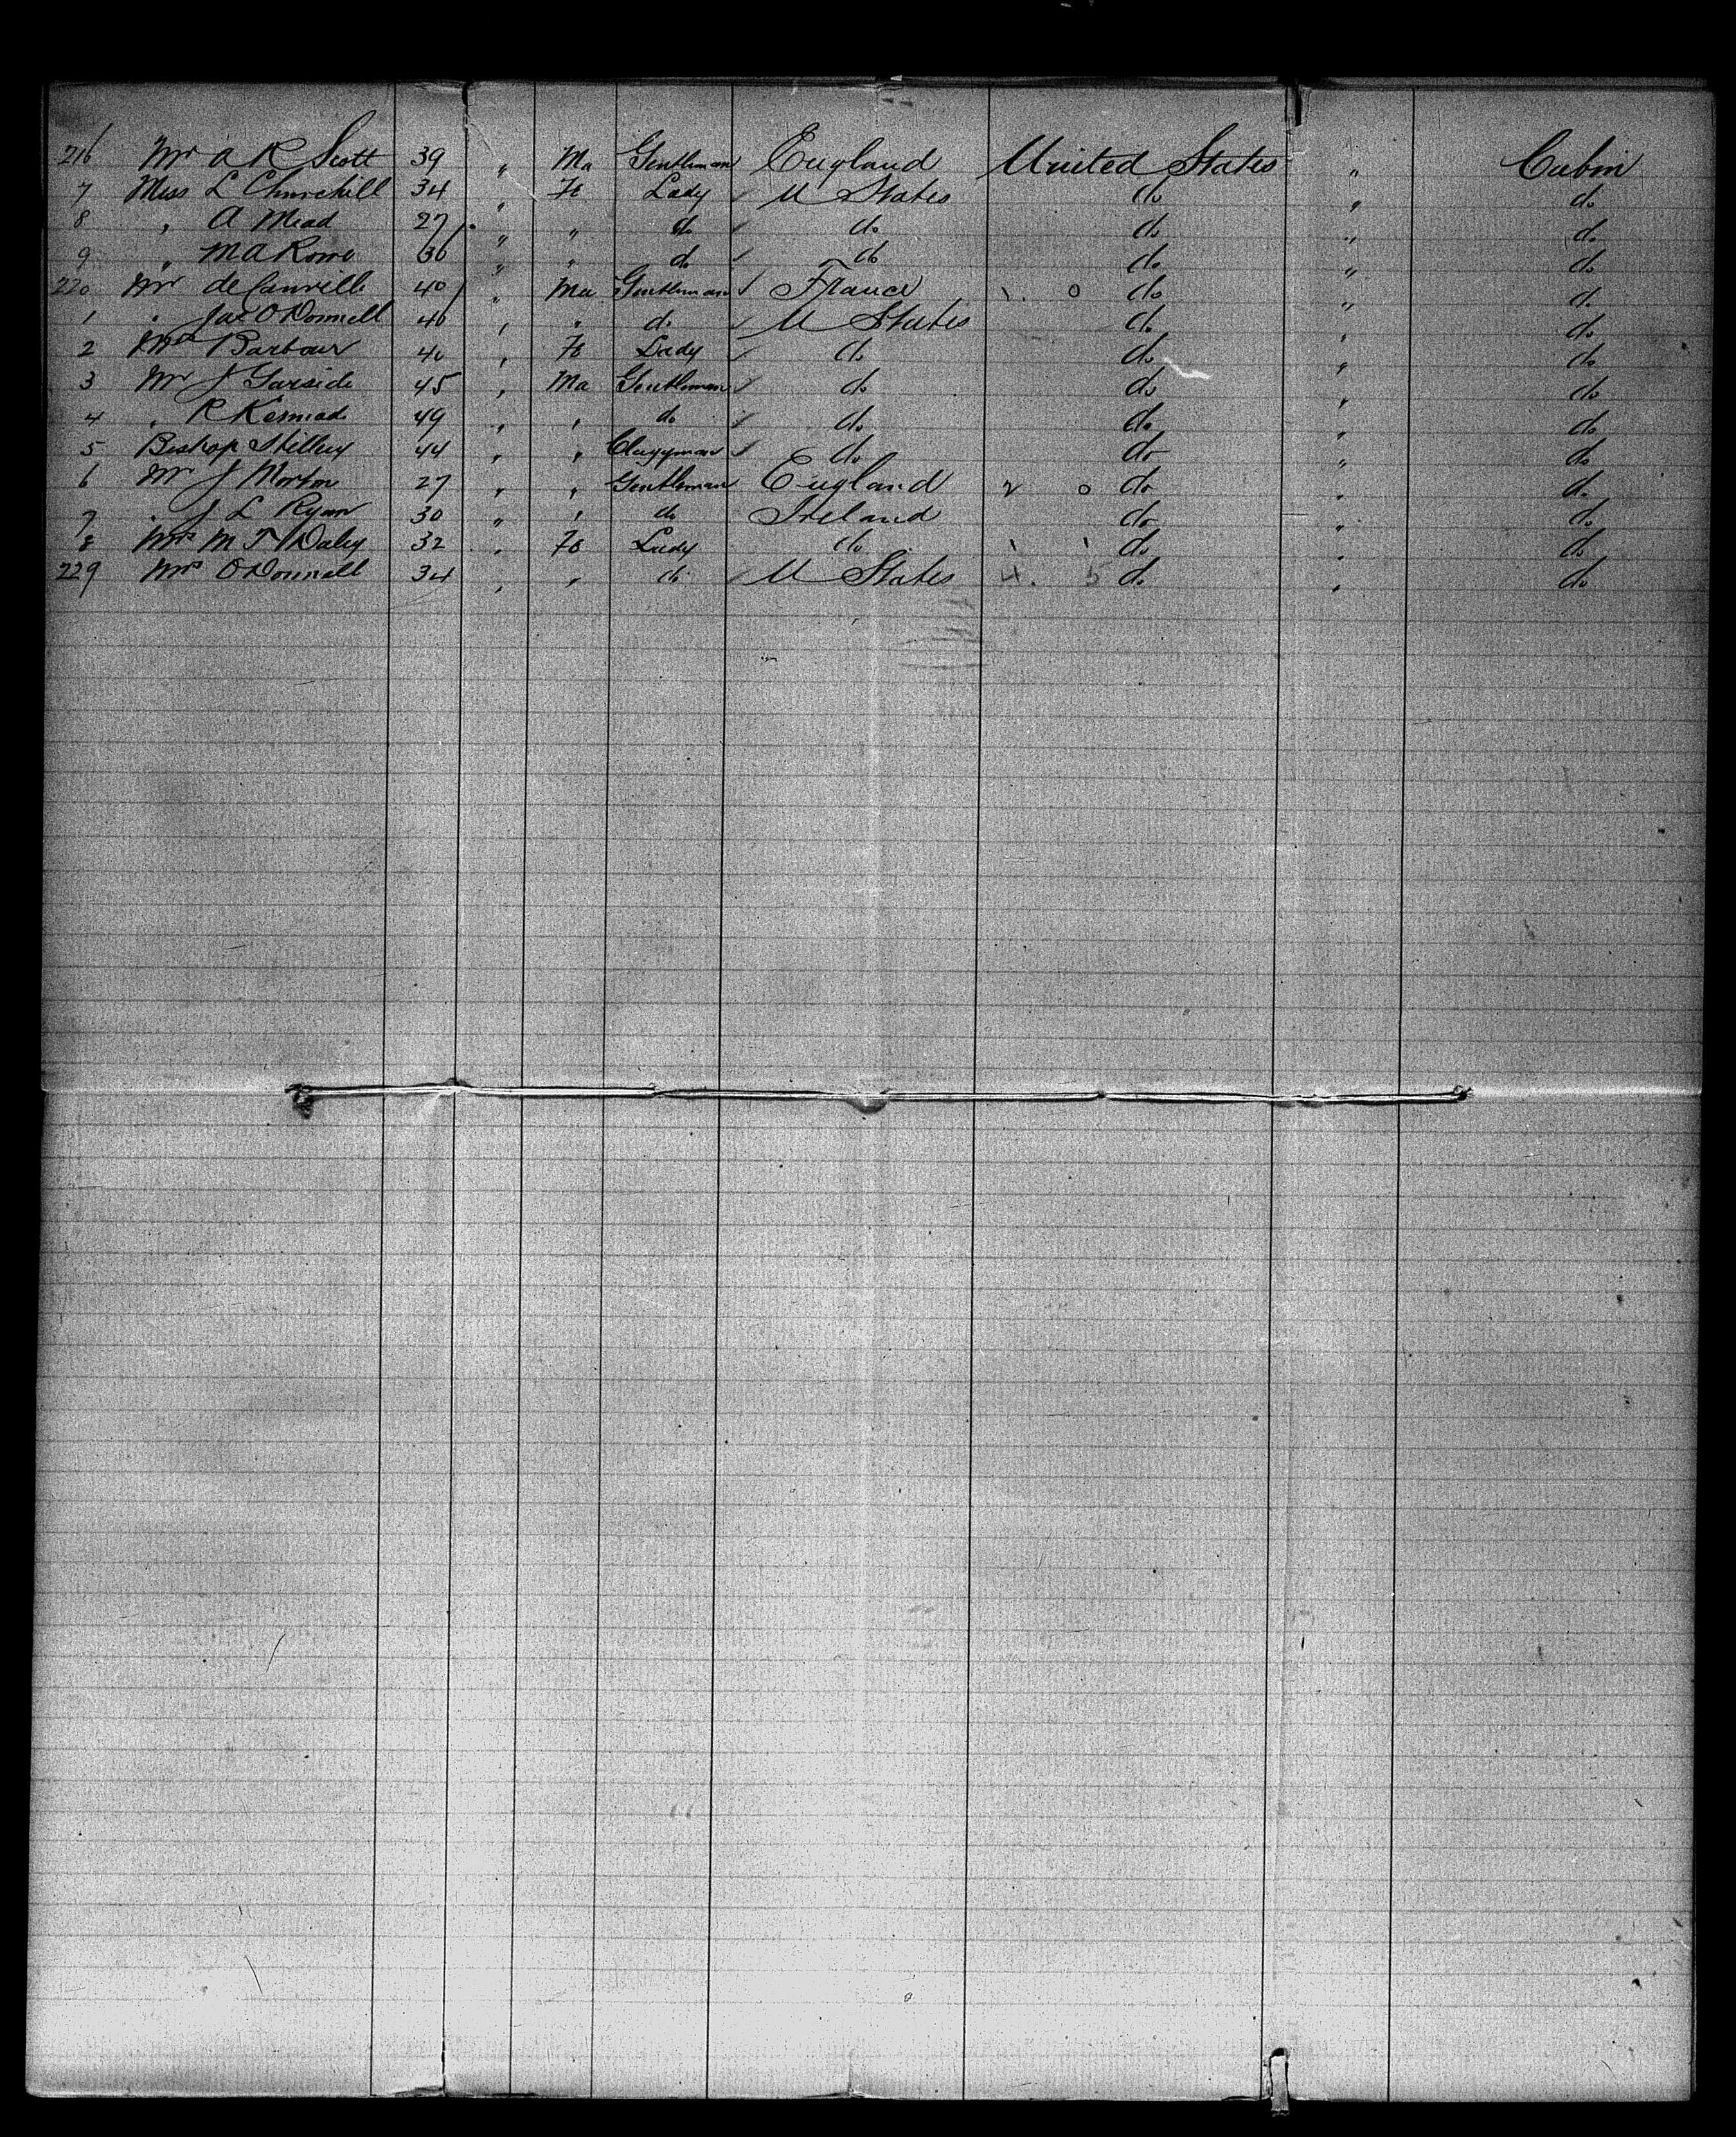 216 Mr A R Scott 39 " Ma Gentleman England United States " Cabin
7 Miss L Churchill 34 " Fe Lady U States do " do
8 " A Mead 27 " " do do do " do
9 " M A Rowe 36 " " do do do " do
220 Mr de 40 " Ma Gentleman France do " do
1 " Jas O'Donnell 40 " " do U States do " do
2 Barbour 40 " Fe Lady do do " do
3 Mr J Garside 45 " Ma Gentleman do do " do
4 " R 49 " " do do do " do
5 Bishop 44 " " Clergyman do do " do
6 Mr J Morton 27 " " Gentleman England 2 0 do " do
7 " J L Ryan 30 " " do Ireland do " do
8 Mrs M T Daley 32 " Fe Lady do do " do
229 Mrs O'Donnell 34 " " do U States 4. 5 do " do